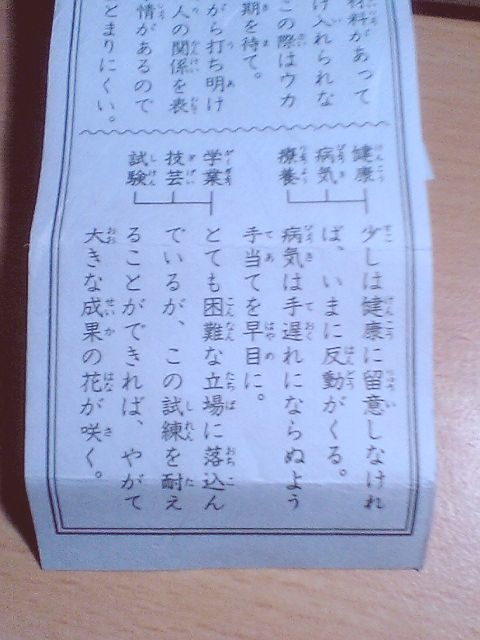 材料があって
け入れられな
この際はウカ
期を待て。
がら打ち明け
人の関係を表
情があるので
とまりにくい。
健康
病気
療養
少しは健康に留意しなけれ
ば、いまに反動がくる。
病気は手遅れにならぬよう
手当てを早目に。
学業
技芸
試験
とても困難な立場に落込ん
でいるが、この試練を耐え
ることができれば、やがて
大きな成果の花が咲く。